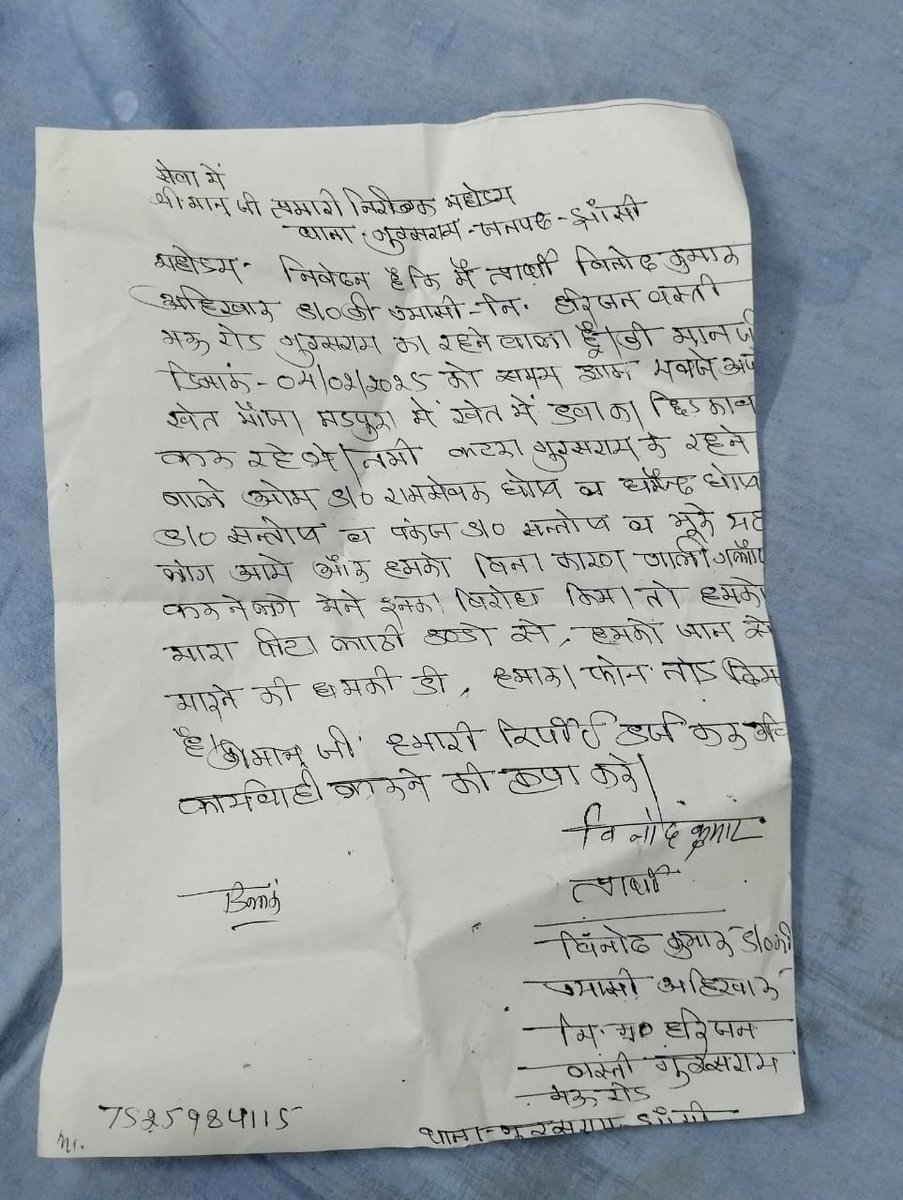 सेवा में
श्री मान् जी प्रभारी निरीक्षक महोदय
थाना गुरसराय - जनपद - झाँसी
महोदय - निवेदन है कि मैं प्रार्थी विनोद कुमार
अहिरवार S/O श्री प्यासी - नि. हरिजन बस्ती
मऊ रोड गुरसराय का रहने वाला हूँ। श्री मान जी
दिनांक - 04/02/2025 को समय शाम बजे अपने
खेत मौजा मडपुरा में खेत में दवा का छिडकाव
कर रहे थे। तभी कटरा गुरसराय के रहने
वाले ओम S/O रामसेवक घोष व धर्मेन्द्र घोष
S/O सन्तोष व पंकज S/O सन्तोष व भूरे यह
लोग आये और हमको बिना कारण गाली गलौज
करने लगे मैने इनका विरोध किया तो हमको
मारा पीटा लाठी डण्डो से, हमको जान से
मारने की धमकी दी, हमारा फोन तोड दिया
है। श्रीमान् जी हमारी रिपोर्ट दर्ज कर
कार्यवाही करने की कृपा करे।
विनोद कुमार
प्रार्थी
दिनांक
विनोद कुमार S/O श्री
प्यासी अहिरवार
नि. मु० हरिजन
बस्ती गुरसराय
मऊ रोड
7525984115
थाना - गुरसराय झाँसी